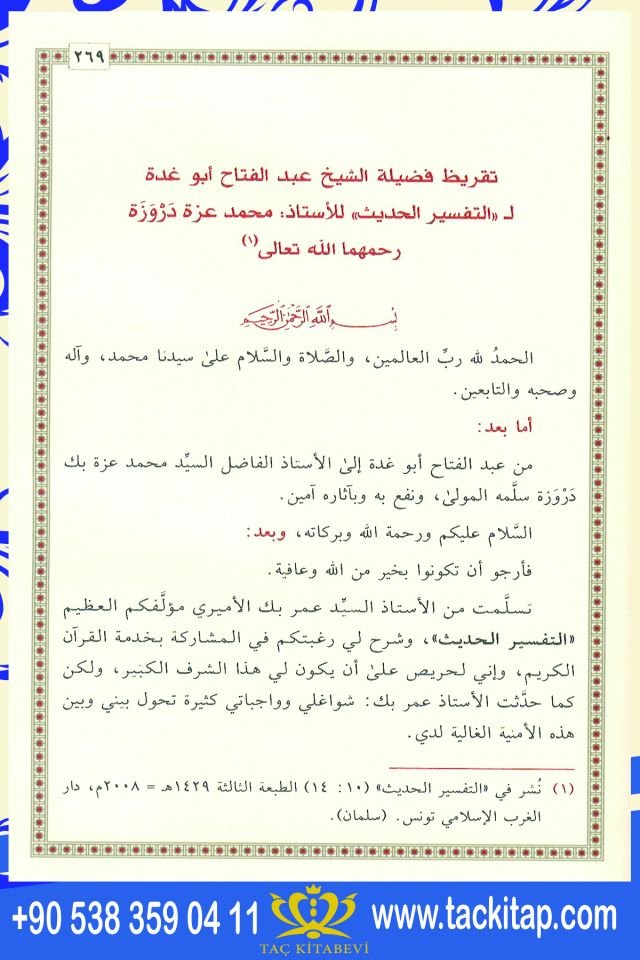 ٢٦٩
تقريظ فضيلة الشيخ عبد الفتاح أبو غدة
لـ «التفسير الحديث» للأستاذ: محمد عزة دَرْوَزَة
رحمهما الله تعالى(١)
بِسْمِ اللَّهِ الرَّحْمَٰنِ الرَّحِيمِ
الحمدُ لله ربِّ العالمين، والصَّلاة والسَّلام علىٰ سيدنا محمد، وآله
وصحبه والتابعين.
أما بعد:
من عبد الفتاح أبو غدة إلىٰ الأستاذ الفاضل السيِّد محمد عزة بك
دَرْوَزة سلَّمه المولىٰ، ونفع به وبآثاره آمين.
السَّلام عليكم ورحمة الله وبركاته، وبعد:
فأرجو أن تكونوا بخير من الله وعافية.
تسلَّمت من الأستاذ السيِّد عمر بك الأميري مؤلَّفكم العظيم
«التفسير الحديث»، وشرح لي رغبتكم في المشاركة بخدمة القرآن
الكريم، وإني لحريص علىٰ أن يكون لي هذا الشرف الكبير، ولكن
كما حدَّثت الأستاذ عمر بك: شواغلي وواجباتي كثيرة تحول بيني وبين
هذه الأمنية الغالية لدي.
(١) نُشر في «التفسير الحديث» (١٠: ١٤) الطبعة الثالثة ١٤٢٩هـ = ٢٠٠٨م، دار
الغرب الإسلامي تونس. (سلمان).
+90 538 359 04 11
TAÇ KİTABEVİ
www.tackitap.com